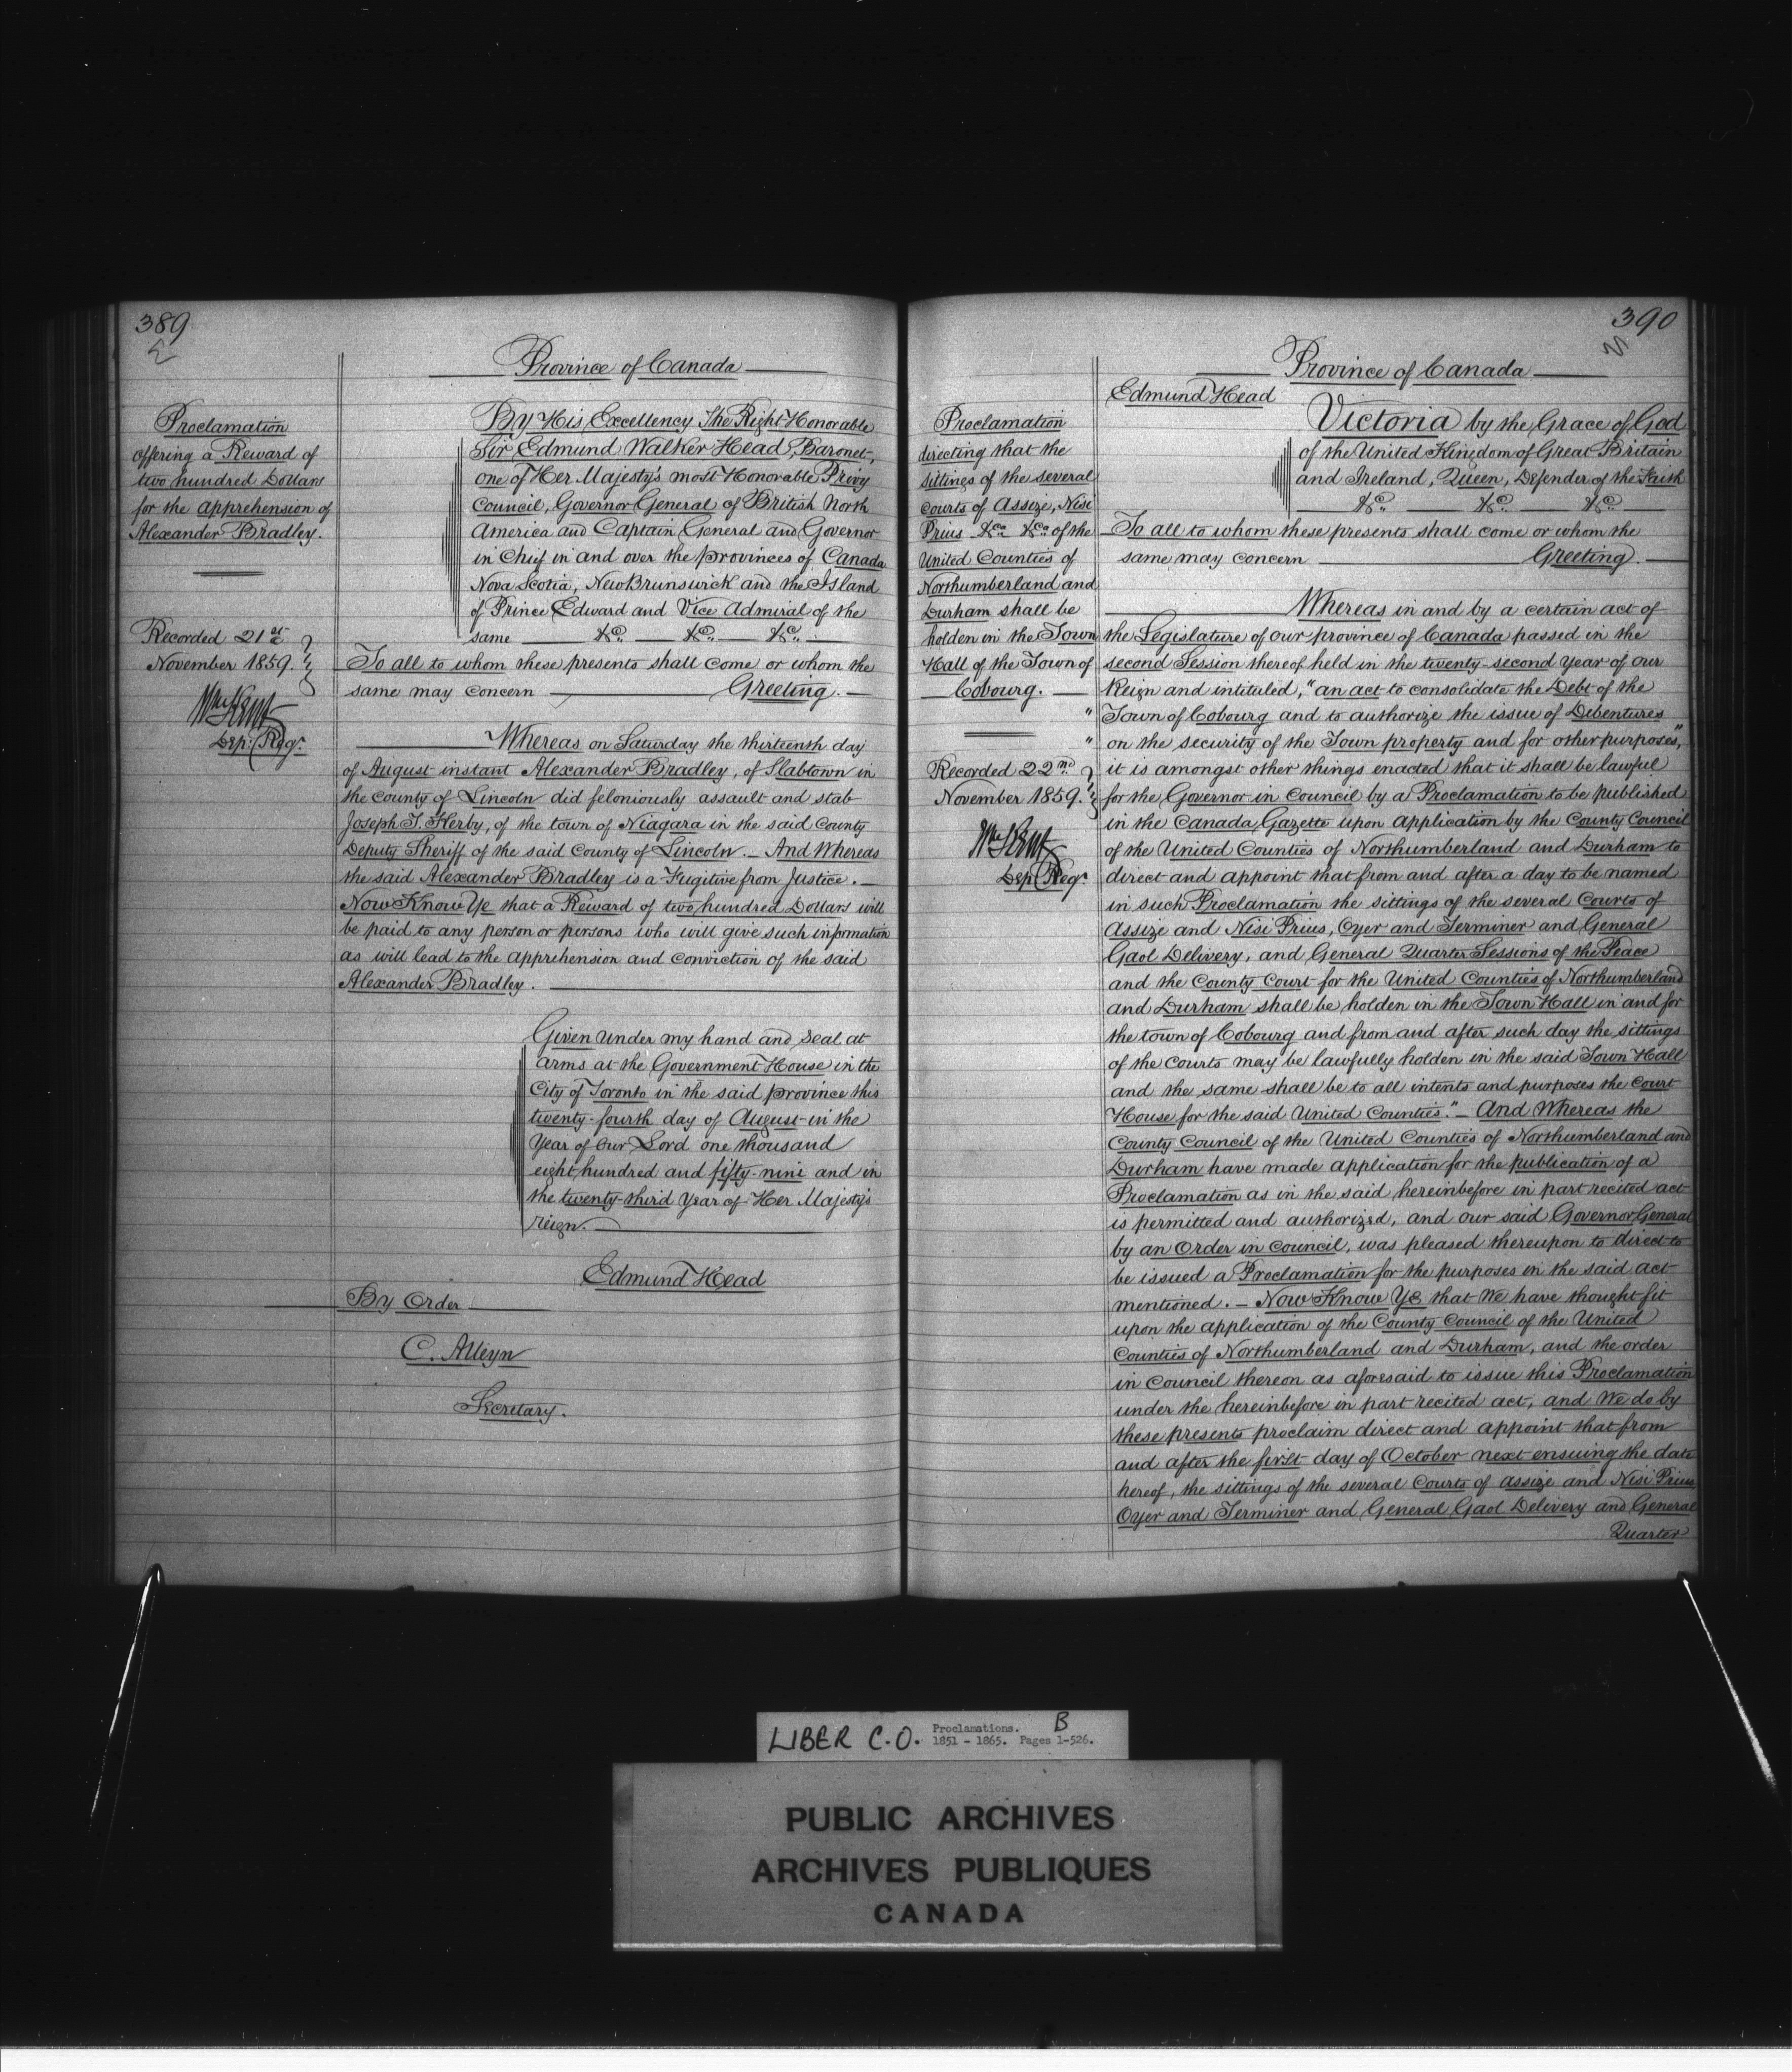 389
Province of Canada
Proclamation
offering a Reward of
two hundred Dollars
for the apprehension of
Alexander Bradley.
Recorded 21st
November 1859.
Wm Kent
Dep: Regr.
By His Excellency The Right Honorable
Sir Edmund Walker Head, Baronet,
one of Her Majesty's most Honorable Privy
Council, Governor General of British North
America and Captain General and Governor
in Chief in and over the provinces of Canada
Nova Scotia, New Brunswick and the Island
of Prince Edward and Vice Admiral of the
same &c. &c. &c.
To all to whom these presents shall come or whom the
same may concern Greeting.
Whereas on Saturday the thirteenth day
of August instant Alexander Bradley, of Slabtown in
the county of Lincoln did feloniously assault and stab
Joseph T. Kerby, of the town of Niagara in the said County
Deputy Sheriff of the said County of Lincoln. And Whereas
the said Alexander Bradley is a Fugitive from Justice.
Now Know Ye that a Reward of two hundred Dollars will
be paid to any person or persons who will give such information
as will lead to the apprehension and conviction of the said
Alexander Bradley.
Given under my hand and seal at
arms at the Government House in the
City of Toronto in the said province this
twenty-fourth day of August in the
Year of Our Lord one thousand
eight hundred and fifty-nine and in
the twenty-third Year of Her Majesty's
reign.
Edmund Head
By Order
C. Alleyn
Secretary.
390
Province of Canada
Edmund Head
Proclamation
directing that the
sittings of the several
courts of Assize, Nisi
Prius &ca &ca of the
United Counties of
Northumberland and
Durham shall be
holden in the Town
Hall of the Town of
Cobourg.
Recorded 22nd
November 1859.
Wm Kent
Dep Regr.
Victoria by the Grace of God
of the United Kingdom of Great Britain
and Ireland, Queen, Defender of the Faith
&c. &c. &c.
To all to whom these presents shall come or whom the
same may concern Greeting.
Whereas in and by a certain act of
the Legislature of our province of Canada passed in the
second Session thereof held in the twenty-second year of our
Reign and intituled, "an act to consolidate the Debt of the
" Town of Cobourg and to authorize the issue of Debentures
" on the security of the Town property and for other purposes,"
it is amongst other things enacted that it shall be lawful
for the Governor in Council by a Proclamation to be published
in the Canada Gazette upon application by the County Council
of the United Counties of Northumberland and Durham to
direct and appoint that from and after a day to be named
in such Proclamation the sittings of the several Courts of
Assize and Nisi Prius, Oyer and Terminer and General
Gaol Delivery, and General Quarter Sessions of the Peace
and the County Court for the United Counties of Northumberland
and Durham shall be holden in the Town Hall in and for
the town of Cobourg and from and after such day the sittings
of the courts may be lawfully holden in the said Town Hall
and the same shall be to all intents and purposes the Court
House for the said United Counties." And Whereas the
County Council of the United Counties of Northumberland and
Durham have made application for the publication of a
Proclamation as in the said hereinbefore in part recited act
is permitted and authorized, and our said Governor General
by an Order in Council, was pleased thereupon to direct to
be issued a Proclamation for the purposes in the said act
mentioned. Now Know Ye that We have thought fit
upon the application of the County Council of the United
Counties of Northumberland and Durham, and the order
in Council thereon as aforesaid to issue this Proclamation
under the hereinbefore in part recited act, and We do by
these presents proclaim direct and appoint that from
and after the first day of October next ensuing the date
hereof, the sittings of the several Courts of Assize and Nisi Prius
Oyer and Terminer and General Gaol Delivery and General
Quarter
LIBER C.O. Proclamations. B
1851 - 1865. Pages 1-526.
PUBLIC ARCHIVES
ARCHIVES PUBLIQUES
CANADA